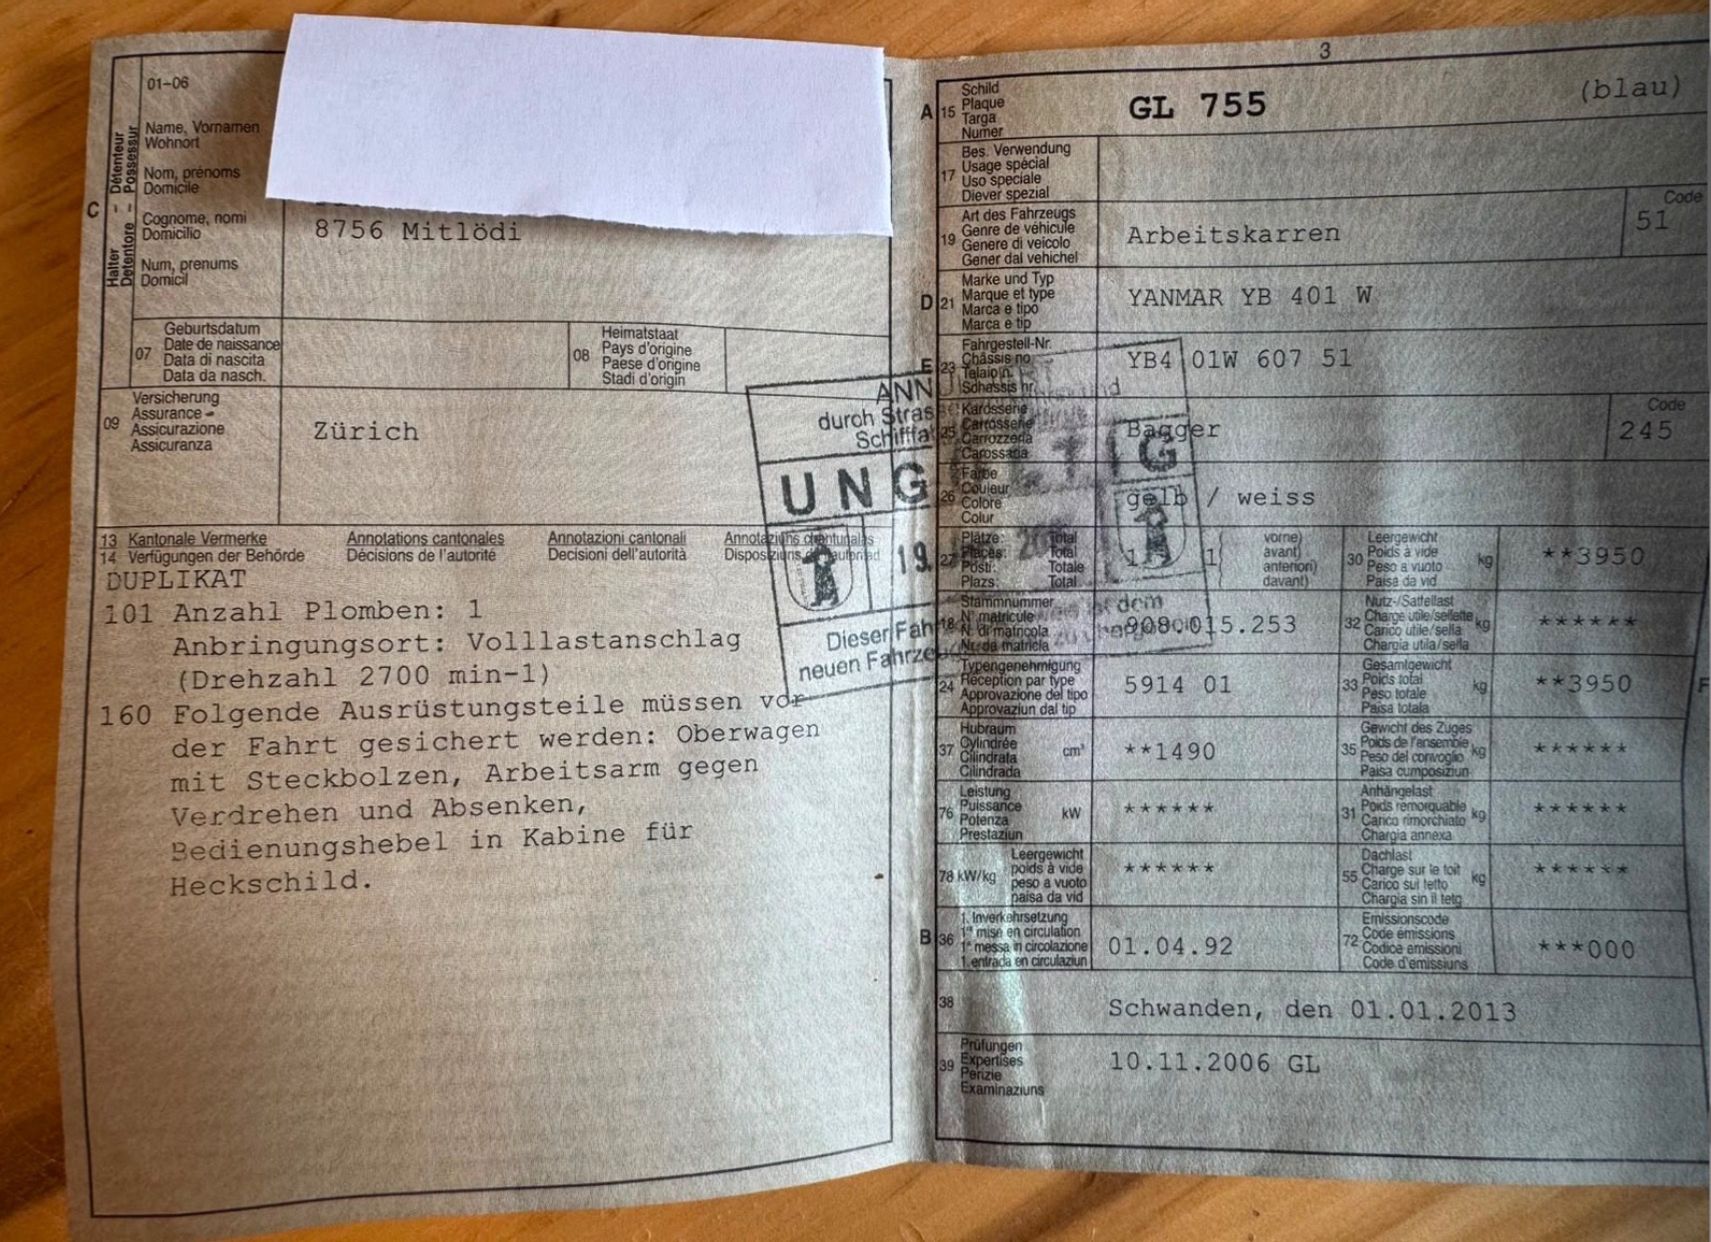 01-06
C
Halter - Détenteur
Detentore - Possessur
Name, Vornamen
Wohnort
Nom, prénoms
Domicile
Cognome, nomi
Domicilio
Num, prenums
Domicil
8756 Mitlödi
07
Geburtsdatum
Date de naissance
Data di nascita
Data da nasch.
08
Heimatstaat
Pays d'origine
Paese d'origine
Stadi d'origin
09
Versicherung
Assurance
Assicurazione
Assicuranza
Zürich
13 Kantonale Vermerke Annotations cantonales Annotazioni cantonali Annotaziuns chantunalas
14 Verfügungen der Behörde Décisions de l'autorité Decisioni dell'autorità
DUPLIKAT
101 Anzahl Plomben: 1
Anbringungsort: Volllastanschlag
(Drehzahl 2700 min-1)
160 Folgende Ausrüstungsteile müssen vor
der Fahrt gesichert werden: Oberwagen
mit Steckbolzen, Arbeitsarm gegen
Verdrehen und Absenken,
Bedienungshebel in Kabine für
Heckschild.
ANN
durch Stras
Schifffa
UNG
19.
Dieser Fah
neuen Fahrze
3
A 15
Schild
Plaque
Targa
Numer
GL 755 (blau)
17
Bes. Verwendung
Usage spécial
Uso speciale
Diever spezial
19
Art des Fahrzeugs
Genre de véhicule
Genere di veicolo
Gener dal vehichel
Arbeitskarren
Code
51
D 21
Marke und Typ
Marque et type
Marca e tipo
Marca e tip
YANMAR YB 401 W
E 23
Fahrgestell-Nr.
Châssis no
Telaio n.
Schassis nr.
YB4 01W 607 51
25
Karosserie
Carrosserie
Carrozzeria
Carossaria
Bagger
Code
245
26
Farbe
Couleur
Colore
Colur
gelb / weiss
27
Plätze: Total
Places: Total
Posti: Totale
Plazs: Total
1 1
vorne)
avant)
anteriori)
davant)
30
Leergewicht
Poids à vide
Peso a vuoto
Paisa da vid
kg
**3950
18
Stammnummer
N° matricule
N. di matricola
Nr. da matricla
908.015.253
32
Nutz-/Sattellast
Charge utile/sellette
Carico utile/sella
Chargia utila/sella
kg
******
24
Typengenehmigung
Réception par type
Approvazione del tipo
Approvaziun dal tip
5914 01
33
Gesamtgewicht
Poids total
Peso totale
Paisa totala
kg
**3950
F
37
Hubraum
Cylindrée
Cilindrata
Cilindrada
cm³
**1490
35
Gewicht des Zuges
Poids de l'ensemble
Peso del convoglio
Paisa cumposiziun
kg
******
76
Leistung
Puissance
Potenza
Prestaziun
kW
******
31
Anhängelast
Poids remorquable
Carico rimorchiato
Chargia annexa
kg
******
78 kW/kg
Leergewicht
poids à vide
peso a vuoto
paisa da vid
******
55
Dachlast
Charge sur le toit
Carico sul tetto
Chargia sin il tetg
kg
******
B 36
1. Inverkehrsetzung
1re mise en circulation
1a messa in circolazione
1. entrada en circulaziun
01.04.92
72
Emissionscode
Code émissions
Codice emissioni
Code d'emissiuns
***000
38
Schwanden, den 01.01.2013
39
Prüfungen
Expertises
Perizie
Examinaziuns
10.11.2006 GL